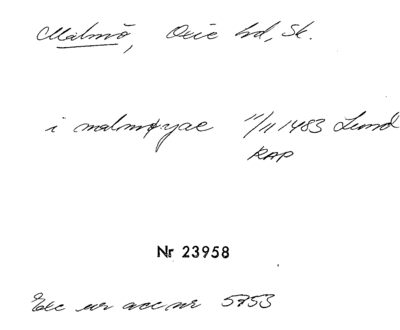 Malmö, Oxie hd, Sk.
i malmøyae 11/11 1483 Lund
RAP
Nr 23958
Exc ur acc nr 5753